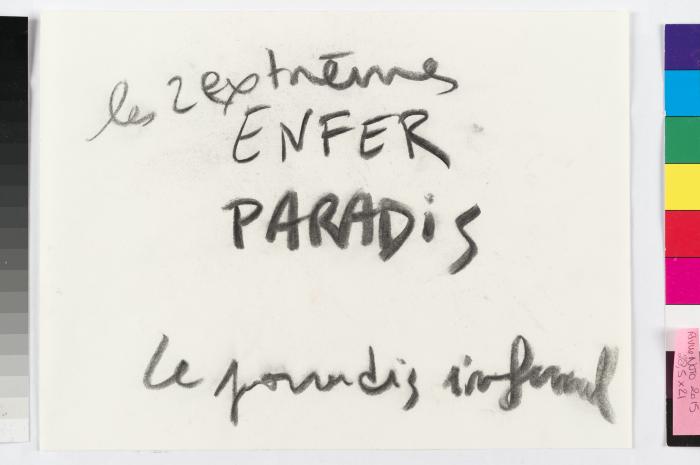 les 2 extrêmes
ENFER
PARADiS
Le paradis infernal
2015
29,5 x 21